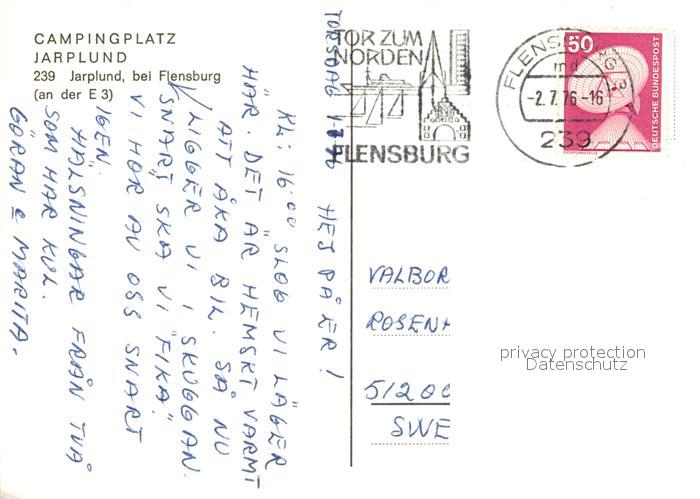 CAMPINGPLATZ
JARPLUND
239 Jarplund, bei Flensburg
(an der E 3)
TOR ZUM
NORDEN
FLENSBURG
FLENSBURG
md
-2.7.76-16
239
50
DEUTSCHE BUNDESPOST
TORSDAG 1-7-76 HEJ PÅ ER!
KL: 16.00 SLOG VI LÄGER
HÄR. DET ÄR HEMSKT VARMT
ATT ÅKA BIL. SÅ NU
LIGGER VI I SKUGGAN.
SNART SKA VI "FIKA".
VI HÖR AV OSS SNART
IGEN.
HÄLSNINGAR FRÅN TVÅ
SOM HAR KUL.
GÖRAN & MARITA.
VALBOR
ROSENH
51200
SWE
privacy protection
Datenschutz